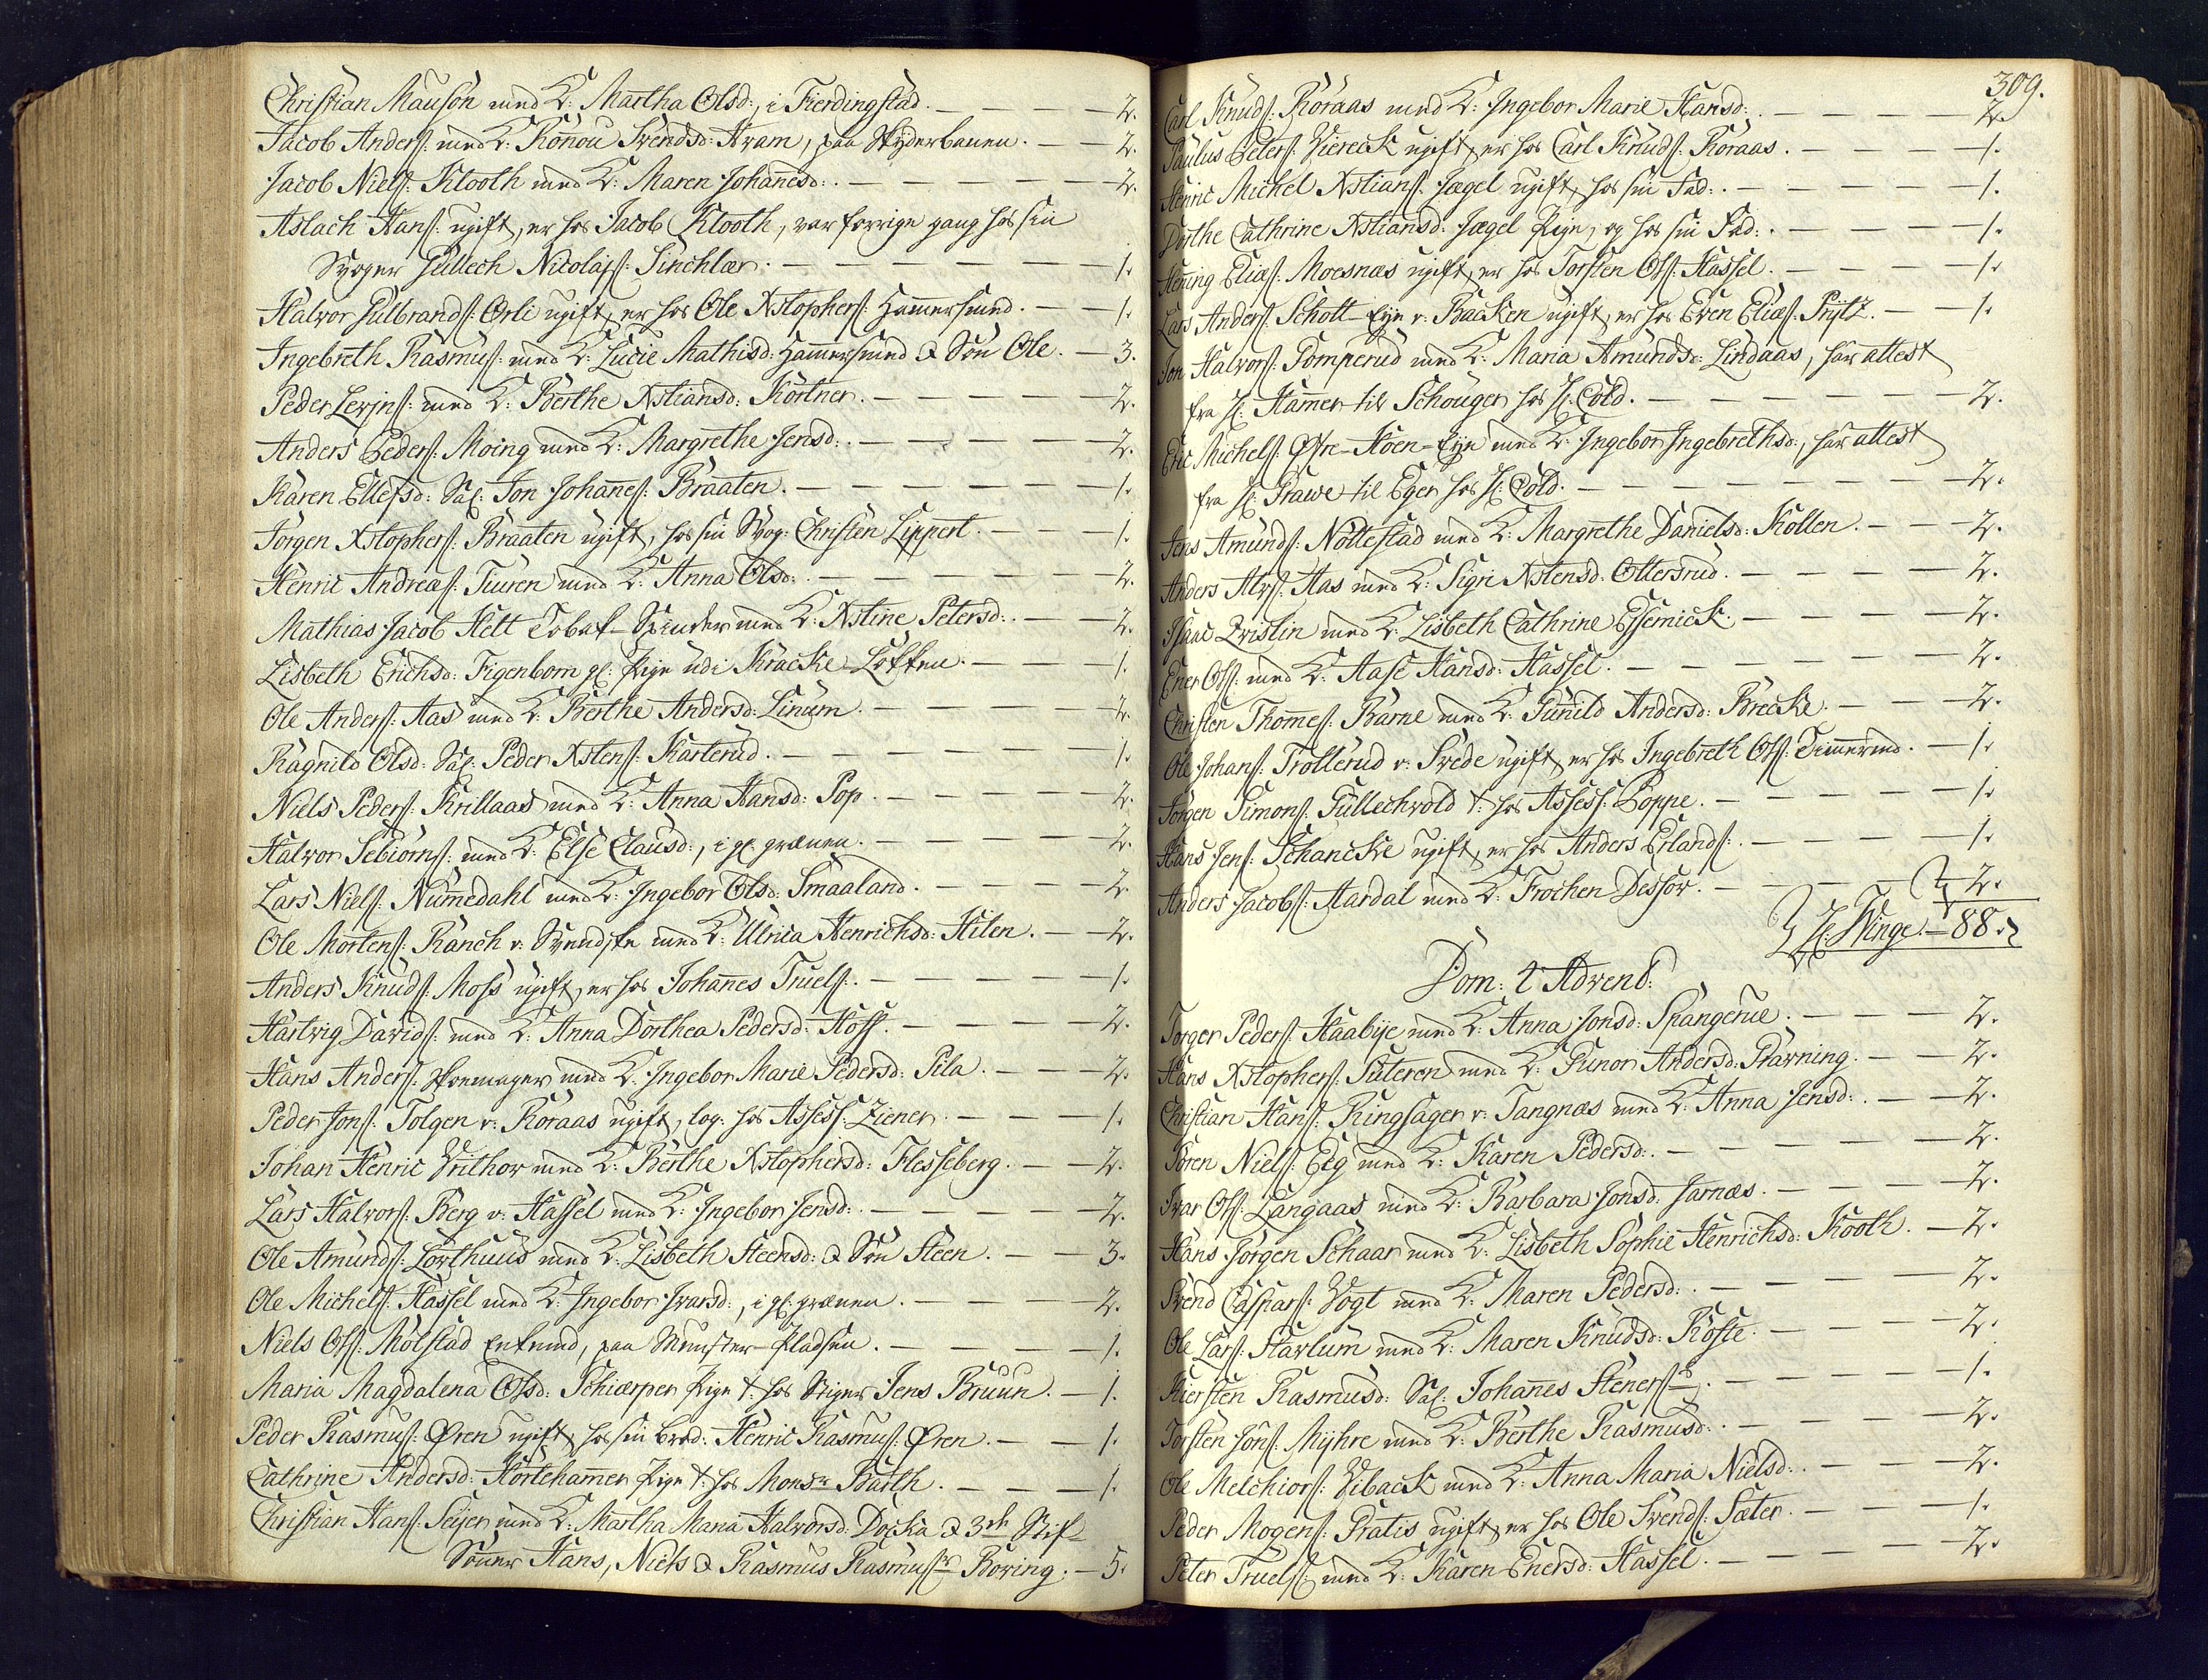 Christian Mauson med K: Martha Olsd:, i Fierdingstad. — 2.
Jacob Anders: med K: Rönou Svendsd: Aram, paa Skyderbanen. — 2.
Jacob Niels: Klooth med K: Maren Johanesd: — 2.
Aslach Hans: ugift, er hos Jacob Klooth, var forrige gang hos sin
Svoger Gullech Nicolajs: Sinchlar. — 1.
Halvor Gulbrands: Orli ugift, er hos Ole Xstophers: Hamersmed. — 1.
Ingebreth Rasmus: med K: Lucie Mathisd: Hamersmed & Sön Ole. — 3.
Peder Levins: med K: Berthe Xstiansd: Körtner. — 2.
Anders Peders: Moing med K: Margrethe Jensd: — 2.
Karen Ellefsd: Sal: Jon Johanes: Braaten. — 1.
Jörgen Xstophers: Braaten ugift, hos sin Svog: Christen Lippert. — 1.
Henric Andreas: Tiuren med K: Anna Olsd: — 2.
Mathias Jacob Helt Tobak-Spinder med K: Xstine Petersd: — 2.
Lisbeth Erichsd: Figenborn gl: Pige udi Kracke-Lökken. — 1.
Ole Anders: Aas med K: Berthe Andersd: Linum. — 2.
Ragnild Olsd: Sal: Peder Xstens: Karterud. — 1.
Niels Peders: Krillaas med K: Anna Hansd: Pop. — 2.
Halvor Sebiörns: med K: Else Clausd:, i gl: grænen. — 2.
Lars Niels: Numedahl med K: Ingebor Olsd: Smaaland. — 2.
Ole Mortens: Ranch v: Svendske med K: Ulrica Henrichsd: Hilen. — 2.
Anders Knuds: Moss ugift, er hos Johanes Truels: — 1.
Hartvig Davids: med K: Anna Dorthea Pedersd: Hoff. — 2.
Hans Anders: Skomager med K: Ingebor Marie Pedersd: Pila. — 2.
Peder Jons: Tolgen v: Röraas ugift, log: hos Assess: Ziener. — 1.
Johan Henric Writhow med K: Berthe Xstophersd: Flesseberg. — 2.
Lars Halvors: Berg v: Hassel med K: Ingebor Jensd: — 2.
Ole Amunds: Lörthuus med K: Lisbeth Steensd: & Sön Steen. — 3.
Ole Michels: Hassel med K: Ingebor Ivarsd:, i gl: grænen. — 2.
Niels Ols: Molstad Enkemd, paa Mynster-Pladsen. — 1.
Maria Magdalena Olsd: Schiærper Pige t: hos Stiger Jens Bruun. — 1.
Peder Rasmus: Øren ugift, hos sin brod: Henric Rasmus: Øren. — 1.
Cathrine Andersd: Körtehamer Pige t: hos Monsr Barth. — 1.
Christian Hans: Seijer med K: Martha Maria Halvorsd: Docka & 3de Stif-
Sönner Hans, Niels & Rasmus Rasmussr Boring. — 5.
309.
Carl Knuds: Röraas med K: Ingebor Marie Hansd: — 2.
Paulus Peters: Viereck ugift, er hos Carl Knuds: Röraas. — 1.
Henric Michel Xstians: Jægel ugift, hos sin Fad: — 1.
Dorthe Cathrine Xstiansd: Jægel Pige, og hos sin Fad: — 1.
Hening Elias: Moesnæs ugift, er hos Torsten Ols: Hassel. — 1.
Lars Anders: Schott-Eye v: Backen ugift, er hos Even Elias: Prytz. — 1.
Jon Halvors: Pomperud med K: Maria Amundsd: Lindaas, har attest
fra H: Hamer til Schouger hos H: Cold. — 2.
Eric Michels: Øfre-Hoen-Eye med K: Ingebor Ingebrethsd:, har attest
fra H: Grawe til Eger hos H: Cold. — 2.
Jens Amunds: Nöttestad med K: Margrethe Danielsd: Kollen. — 2.
Anders Alvs: Aas med K: Sigri Xstensd: Ottersrud. — 2.
Isaac Qvistin med K: Lisbeth Cathrine Essemick. — 2.
Ener Ols: med K: Aase Hansd: Hassel. — 2.
Christen Thomes: Barne med K: Gunild Andersd: Brecke. — 2.
Ole Johans: Trollerud v: Svede ugift, er hos Ingebreth Ols: Timermd. — 1.
Jörgen Simons: Gullechvold t: hos Assess: Poppe. — 1.
Hans Jens: Schancke ugift, er hos Anders Erlands: — 1.
Anders Jacobs: Aardal med K: Frochen Dessow. — 2.
H: Winge. — 88.
Dom: 2 Advent:
Torger Peders: Haabye med K: Anna Jonsd: Spangerue. — 2.
Hans Xstophers: Suteren med K: Gunor Andersd: Prærning. — 2.
Christian Hans: Ringsager v: Tangnæs med K: Anna Jensd: — 2.
Sören Niels: Eeg med K: Karen Pedersd: — 2.
Ivar Ols: Langaas med K: Barbara Jonsd: Jarnæs. — 2.
Hans Jörgen Schaar med K: Lisbeth Sophie Henrichsd: Kooth. — 2.
Svend Caspars: Vogt med K: Maren Pedersd: — 2.
Ole Lars: Harlum med K: Maren Knudsd: Röste. — 2.
Kiersten Rasmusd: Sal: Johanes Steners: — 1.
Torsten Jons: Myhre med K: Berthe Rasmusd: — 2.
Ole Melchiors: Viback med K: Anna Maria Nielsd: — 2.
Peder Mogens: Gratis ugift, er hos Ole Svends: Sæter. — 1.
Peter Truels: med K: Karen Enersd: Hassel. — 2.